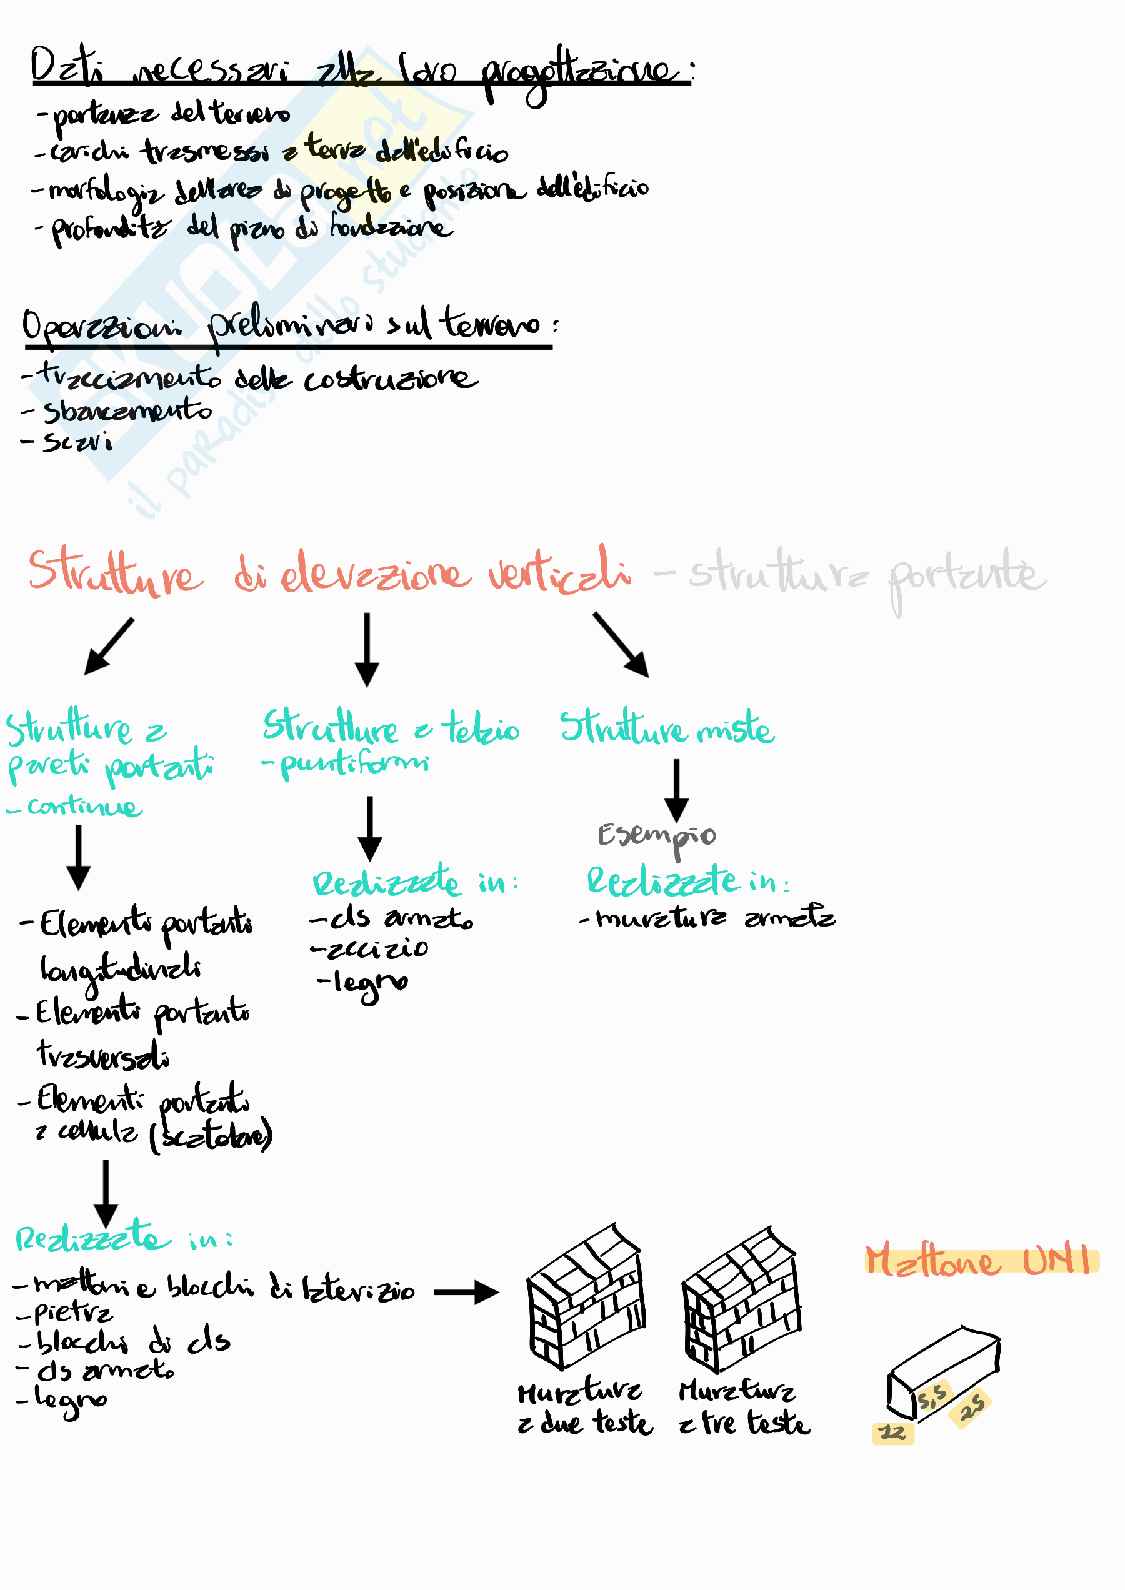 Dati necessari alla loro progettazione:
- portanza del terreno
- carichi trasmessi a terra dall'edificio
- morfologia dell'area di progetto e posizione dell'edificio
- profondità del piano di fondazione
Operazioni preliminari sul terreno:
- tracciamento della costruzione
- sbancamento
- scavi
SKUOLA.net
il paradiso dello studente
Strutture di elevazione verticali - struttura portante
Strutture a
pareti portanti
- continue
Strutture a telaio
- puntiformi
Strutture miste
Esempio
- Elementi portanti
longitudinali
- Elementi portanti
trasversali
- Elementi portanti
a cellula (scatolare)
Realizzate in:
- cls armato
- acciaio
- legno
Realizzate in:
- muratura armata
Realizzate in:
- mattoni e blocchi di laterizio
- pietra
- blocchi di cls
- cls armato
- legno
Muratura
a due teste
Muratura
a tre teste
Mattone UNI
5,5
25
12